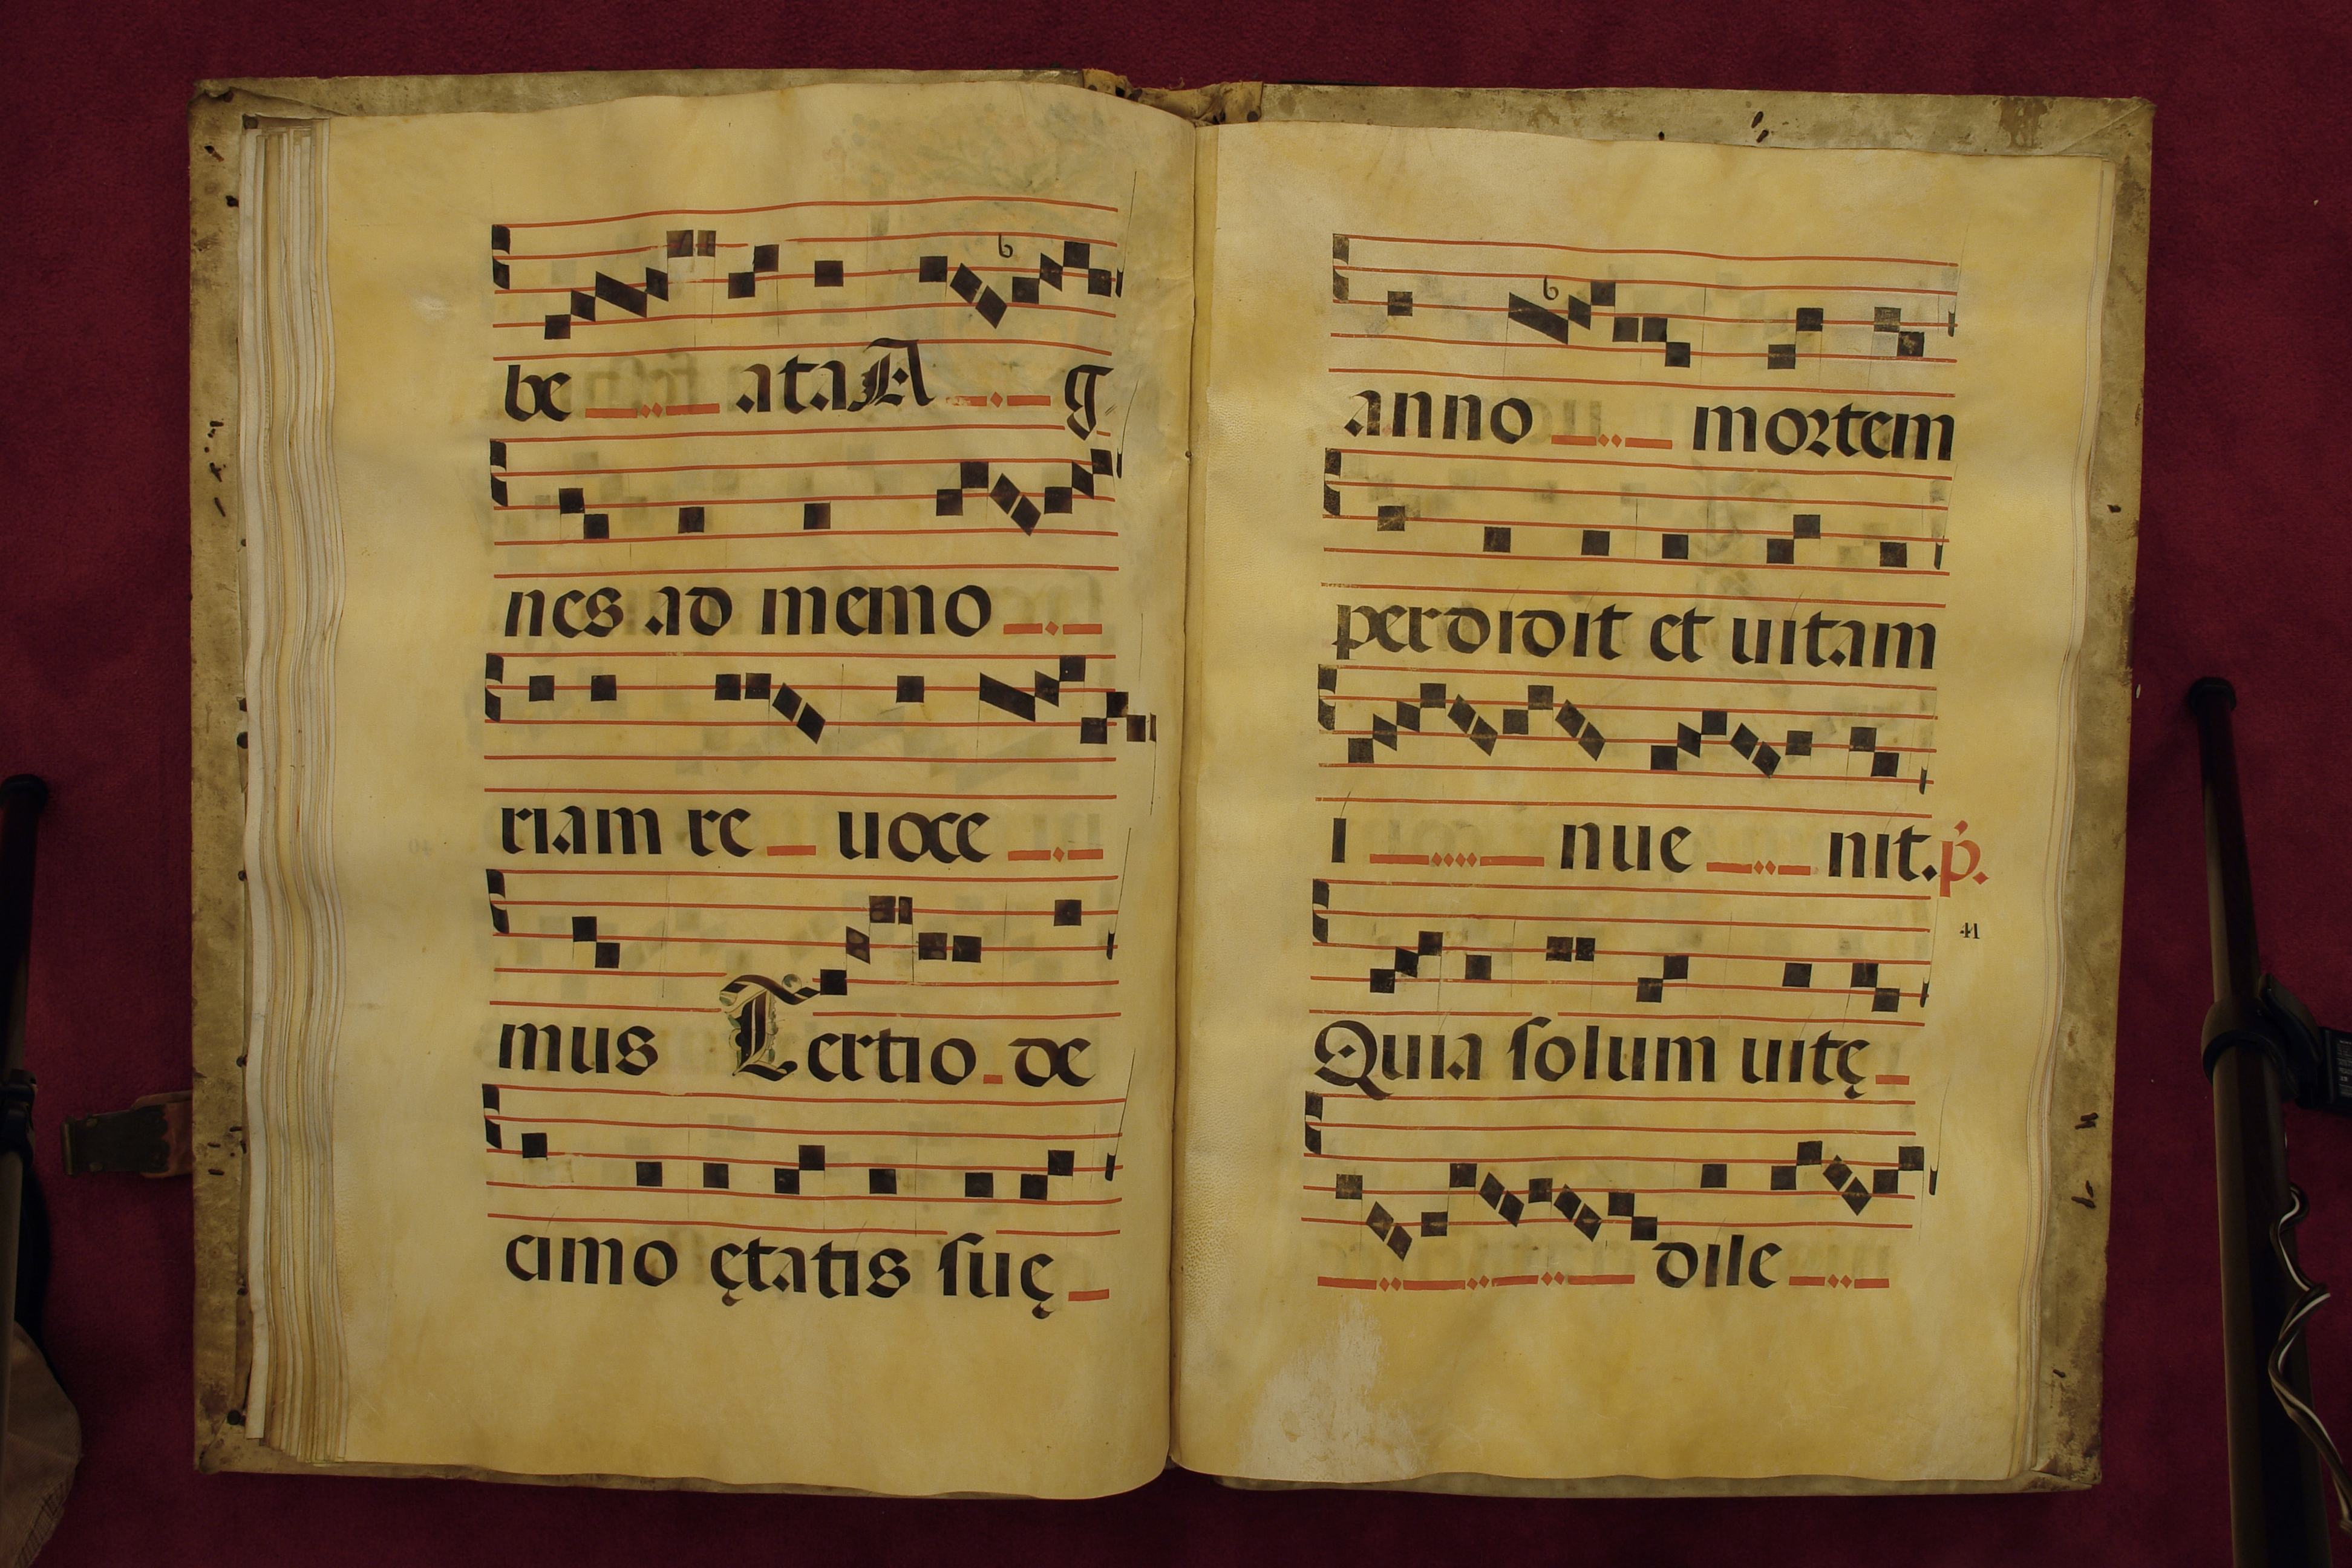 be ata A g
nes ad memo
riam re uoce
mus Tertio de
cimo ętatis suę
anno mortem
perdidit et uitam
i nue nit. p̃.
41
Quia solum uitę
dile